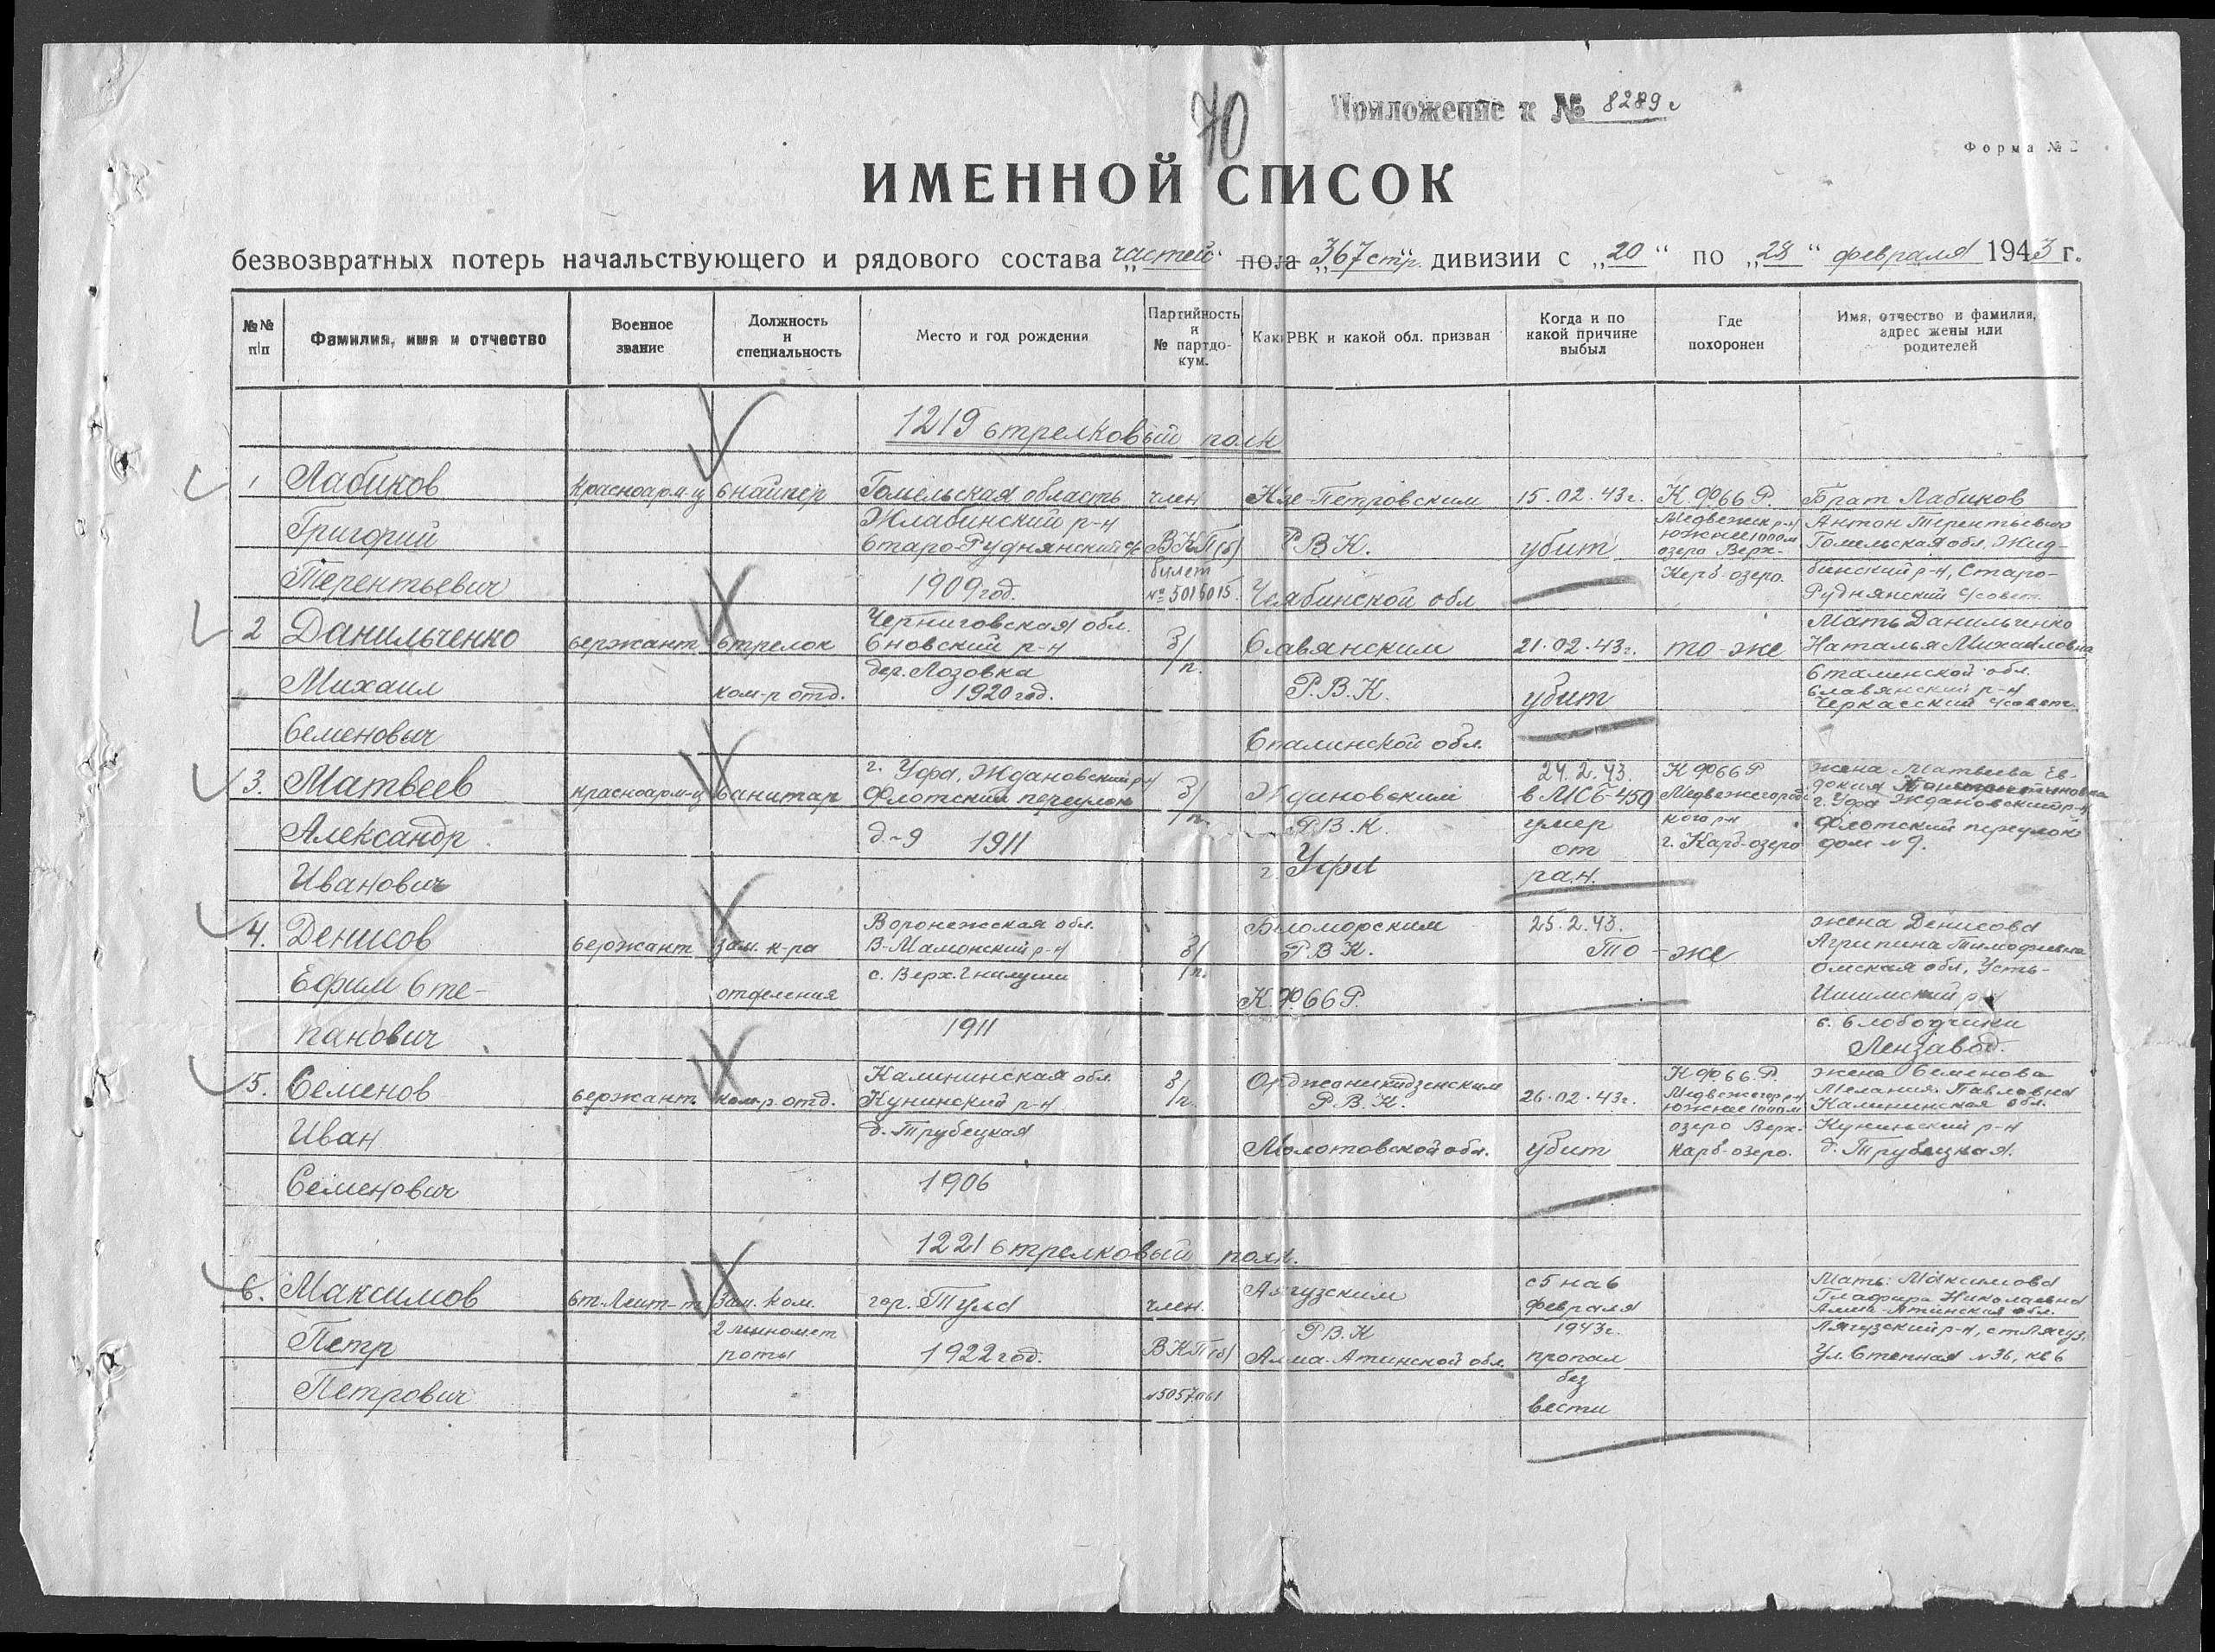 70
Приложение к № 8289с
Форма № 2
ИМЕННОЙ СПИСОК
безвозвратных потерь начальствующего и рядового состава частей полка 367 стр. дивизии с „20“ по „28“ февраля 1943 г.
№№ п/п
Фамилия, имя и отчество
Военное звание
Должность и специальность
Место и год рождения
Партийность и № партдокум.
Как. РВК и какой обл. призван
Когда и по какой причине выбыл
Где похоронен
Имя, отчество и фамилия, адрес жены или родителей
1219 стрелковый полк
1 Лабиков красноарм-ц снайпер Гомельская область член Кзе-Петровским 15.02.43г. К.Ф66Р. Брат Лабиков
Григорий Жлабинский р-н Медвежек р-н Антон Терентьевич
Старо-Руднянский с/с ВКП(б) РВК. убит южнее 1000м озеро Верх- Гомельская обл. Жид-
Терентьевич 1909 год. билет №5015015. Челябинской обл Керб-озеро. бинский р-н, Старо-
Руднянский с/совет.
2 Данильченко сержант стрелок Черниговская обл. Сновский р-н б/п. Славянским 21.02.43г. то-же Мать Данильченко Наталья Михайловна
Михаил ком-р отд. дер. Лозовка 1920 год. Р.В.К. убит Сталинской обл. Славянский р-н Черкасский с/совет.
Семенович Сталинской обл.
3. Матвеев красноарм-ц санитар г. Уфа, Ждановский р-н Флотский переулок б/п. Ждановским 24.2.43. в МСБ-450 К Ф66Р Медвежегорс- жена Матвеева Ев-
докия
г. Уфа Ждановский р-н
Александр д-9 1911 Р.В.К. умер от кого р-н г. Карб-озеро флотский переулок дом №9.
Иванович г. Уфа ран.
4. Денисов сержант зам. к-ра Воронежская обл. В-Мамонский р-н б/п. Беломорским Р.В.К. 25.2.43. То-же жена Денисова Агрипина Тимофеевна
Ефим Сте- отделения с. Верх. Гнилуши К.Ф66Р. Омская обл, Усть-
Ишимский р-н
панович 1911 с. Слободчики
Лензавод.
5. Семенов сержант ком-р отд. Калининская обл. Кунинский р-н б/п. Орджоникидзенским Р.В.К. 26.02.43г. К.Ф.66.Р. Медвежегор р-н южнее 1000м жена Семенова Мелания Павловна Калининская обл.
Иван д. Трубецкая Молотовской обл. убит озеро Верх- Карб-озеро. Кунинский р-н д. Трубецкая.
Семенович 1906
1221 стрелковый полк.
6. Максимов ст. Лейт-т Зам. ком. гор. Тула член. Аягузским с 5 на 6 февраля Мать: Максимова Глафира Николаевна Алма-Атинская обл.
Петр 2 миномет роты 1922 год. ВКП(б) РВК Алма-Атинской обл. 1943г. пропал Аягузский р-н, ст Аягуз. Ул. Степная №36, кв 6
Петрович №5057061 без
вести